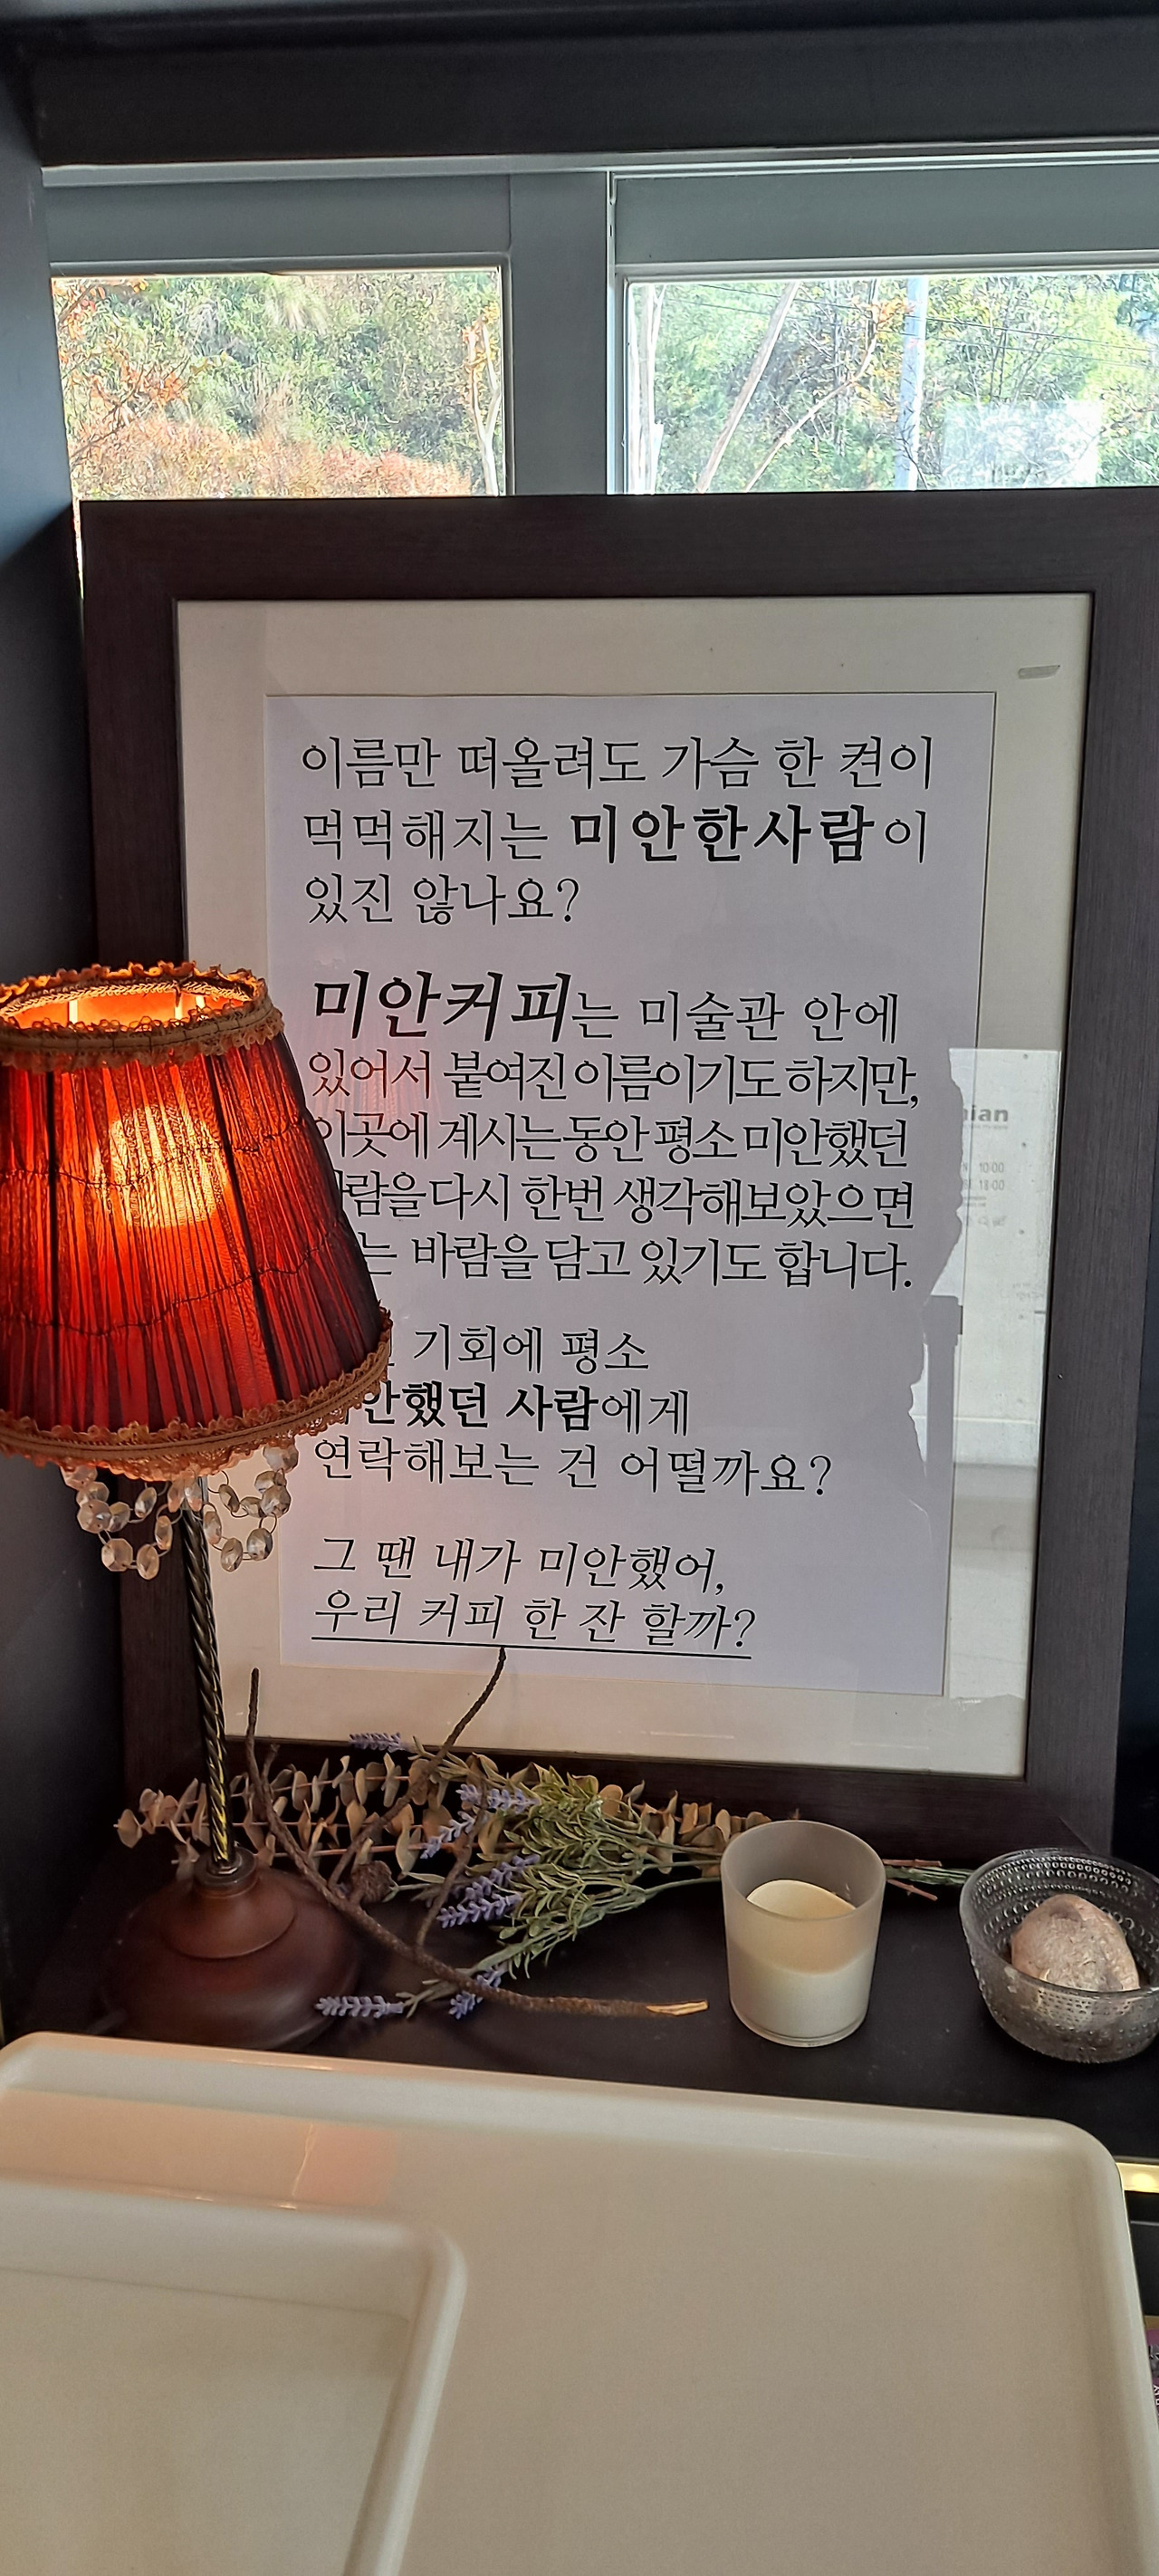 이름만 떠올려도 가슴 한 켠이
먹먹해지는 미안한사람이
있진 않나요?
미안커피는 미술관 안에
있어서 붙여진 이름이기도 하지만,
이곳에 계시는 동안 평소 미안했던
다시 한번 생각해보았으면
바람을 담고 있기도 합니다.
기회에 평소
사람에게
연락해보는 건 어떨까요?
그 땐 내가 미안했어,
우리 커피 한 잔 할까?
10:00
18:00